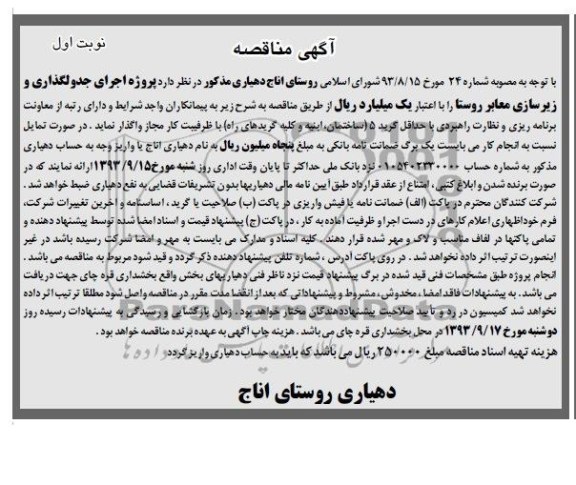 آگهی مناقصه
نوبت اول
با توجه به مصوبه شماره ۲۴ مورخ ۹۳/۸/۱۵ شورای اسلامی روستای اناج دهیاری مذکور در نظر دارد پروژه اجرای جدولگذاری و
زیرسازی معابر روستا را با اعتبار یک میلیارد ریال از طریق مناقصه به شرح زیر به پیمانکاران واجد شرایط و دارای رتبه از معاونت
برنامه ریزی و نظارت راهبردی با حداقل گرید ۵ (ساختمان، ابنیه و کلیه گریدهای راه) با ظرفیت کار مجاز واگذار نماید . در صورت تمایل
نسبت به انجام کار می بایست یک برگ ضمانت نامه بانکی به مبلغ پنجاه میلیون ریال به نام دهیاری اناج یا واریز وجه به حساب دهیاری
مذکور به شماره حساب ۰۱۰۵۴۰۲۳۳۰۰۰۰ نزد بانک ملی حداکثر تا پایان وقت اداری روز شنبه مورخ ۱۳۹۳/۹/۱۵ ارائه نمایند که در
صورت برنده شدن و ابلاغ کتبی ، امتناع از عقد قرارداد طبق آیین نامه مالی دهیاریها بدون تشریفات قضایی به نفع دهیاری ضبط خواهد شد .
شرکت کنندگان محترم در پاکت (الف) ضمانت نامه یا فیش واریزی در پاکت (ب) صلاحیت یا گرید ، اساسنامه و آخرین تغییرات شرکت،
فرم خوداظهاری اعلام کارهای در دست اجرا و ظرفیت آماده به کار ، در پاکت (ج) پیشنهاد قیمت و اسناد امضا شده توسط پیشنهاد دهنده و
تمامی پاکتها در لفاف مناسب و لاک و مهر شده قرار دهند . کلیه اسناد و مدارک می بایست به مهر و امضا شرکت رسیده باشد در غیر
اینصورت ترتیب اثر داده نخواهد شد . در روی پاکت آدرس ، شماره تلفن پیشنهاد دهنده ذکر گردد و قید شود مربوط به مناقصه می باشد .
انجام پروژه طبق مشخصات فنی قید شده در برگ پیشنهاد قیمت نزد ناظر فنی دهیاریهای بخش واقع بخشداری قره چای جهت دریافت
می باشد . به پیشنهادات فاقد امضا ، مخدوش ، مشروط و پیشنهاداتی که بعد از انقضا مدت مقرر در مناقصه واصل شود مطلقا ترتیب اثر داده
نخواهد شد کمیسیون در رد و تأیید صلاحیت پیشنهاددهندگان مختار خواهد بود . زمان بازگشایی و رسیدگی به پیشنهادات رسیده روز
دوشنبه مورخ ۱۳۹۳/۹/۱۷ در محل بخشداری قره چای می باشد . هزینه چاپ آگهی به عهده برنده مناقصه خواهد بود .
هزینه تهیه اسناد مناقصه مبلغ ۲۵۰۰۰۰ ریال می باشد که باید به حساب دهیاری واریز گردد
دهیاری روستای اناج